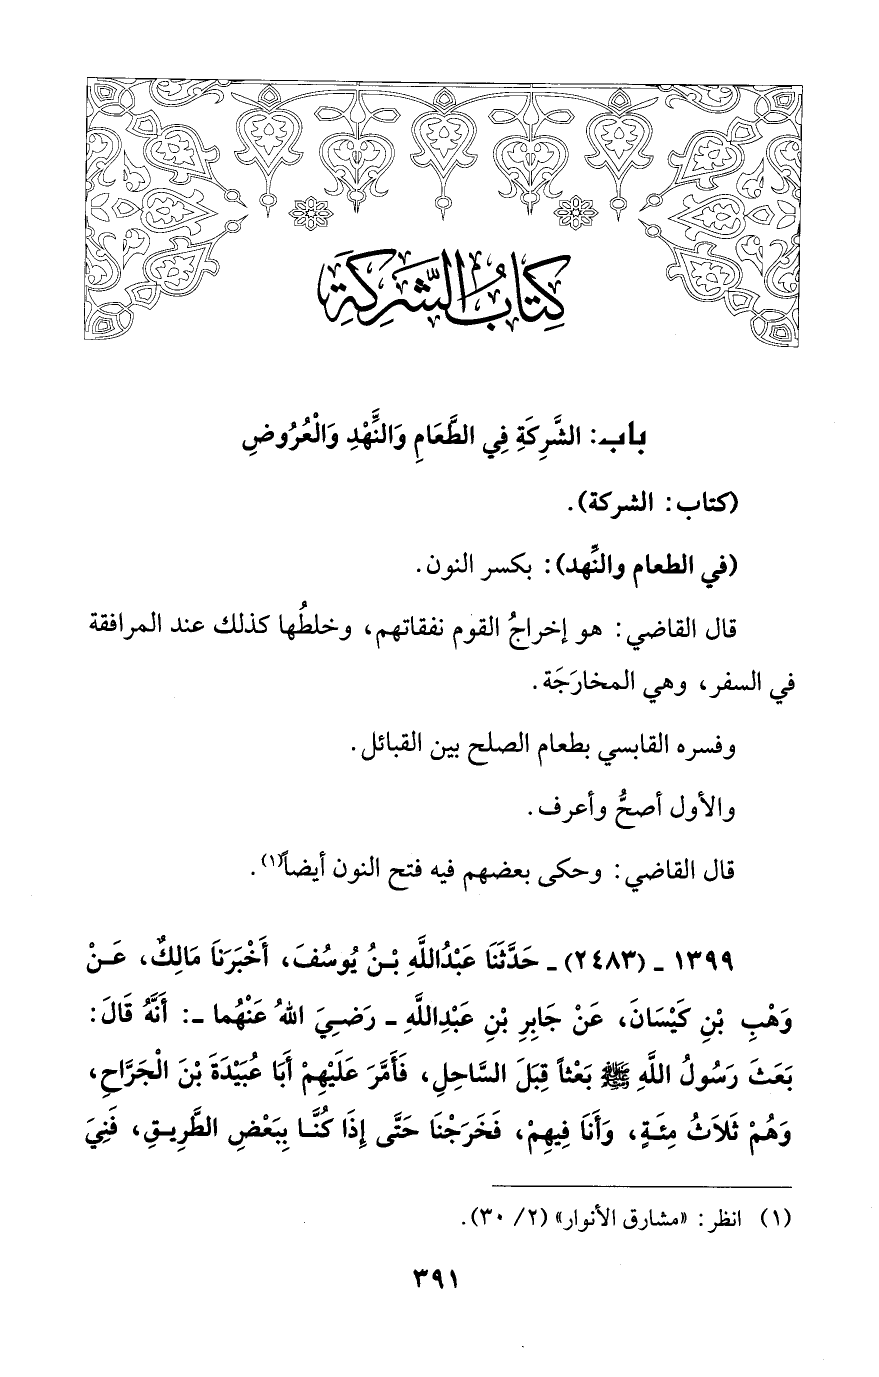 كِتَابُ الشَّرِكَةِ
باب: الشَّرِكَةِ فِي الطَّعَامِ وَالنَّهْدِ وَالْعُرُوضِ
(كتاب: الشركة).
(في الطعام والنِّهد): بكسر النون.
قال القاضي: هو إخراجُ القوم نفقاتهم، وخلطُها كذلك عند المرافقة
في السفر، وهي المخارَجَة.
وفسره القابسي بطعام الصلح بين القبائل.
والأول أصحُّ وأعرف.
قال القاضي: وحكى بعضهم فيه فتح النون أيضاً(١).
١٣٩٩ ـ (٢٤٨٣) ـ حَدَّثَنَا عَبْدُاللَّهِ بْنُ يُوسُفَ، أَخْبَرَنَا مَالِكٌ، عَنْ
وَهْبِ بْنِ كَيْسَانَ، عَنْ جَابِرِ بْنِ عَبْدِاللَّهِ ـ رَضِيَ اللهُ عَنْهُما ـ: أَنَّهُ قَالَ:
بَعَثَ رَسُولُ اللَّهِ ﷺ بَعْثاً قِبَلَ السَّاحِلِ، فَأَمَّرَ عَلَيْهِمْ أَبَا عُبَيْدَةَ بْنَ الْجَرَّاحِ،
وَهُمْ ثَلَاثُ مِئَةٍ، وَأَنَا فِيهِمْ، فَخَرَجْنَا حَتَّى إِذَا كُنَّا بِبَعْضِ الطَّرِيقِ، فَنِيَ
(١) انظر: «مشارق الأنوار» (٢/ ٣٠).
٣٩١